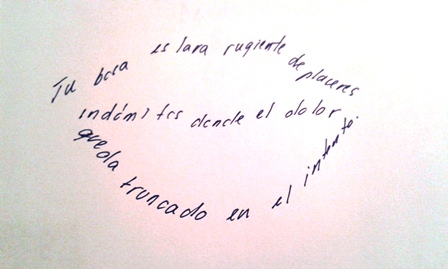 Tu boca es lava rugiente de placeres
indómitos donde el dolor
queda truncado en el intento.